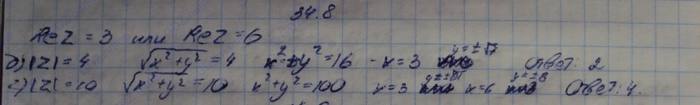 34.8
Re Z = 3 или Re Z = 6
б) |Z| = 4 √x²+y² = 4 x²+y² = 16 x = 3 y = ±√7 Ответ: 2
с) |Z| = 10 √x²+y² = 10 x²+y² = 100 x = 3 x = 6 y = ±8 Ответ: 4.